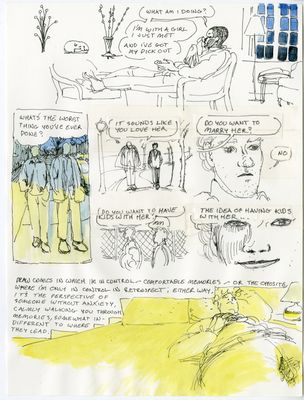 WHAT AM I DOING?
I'M WITH A GIRL
I JUST MET
AND I'VE GOT
MY DICK OUT
WHAT'S THE WORST
THING YOU'VE EVER
DONE?
IT SOUNDS LIKE
YOU LOVE HER
DO YOU WANT TO
MARRY HER?
NO
DO YOU WANT TO HAVE
KIDS WITH HER?
THE IDEA OF HAVING KIDS
WITH HER
DRAW COMICS IN WHICH I'M IN CONTROL - COMFORTABLE MEMORIES - OR THE OPPOSITE,
WHERE I'M ONLY IN CONTROL IN RETROSPECT; EITHER WAY,
IT'S THE PERSPECTIVE OF
SOMEONE WITHOUT ANXIETY,
CALMLY WALKING YOU THROUGH
MEMORIES, SOMEWHAT IN-
DIFFERENT TO WHERE
THEY LEAD.